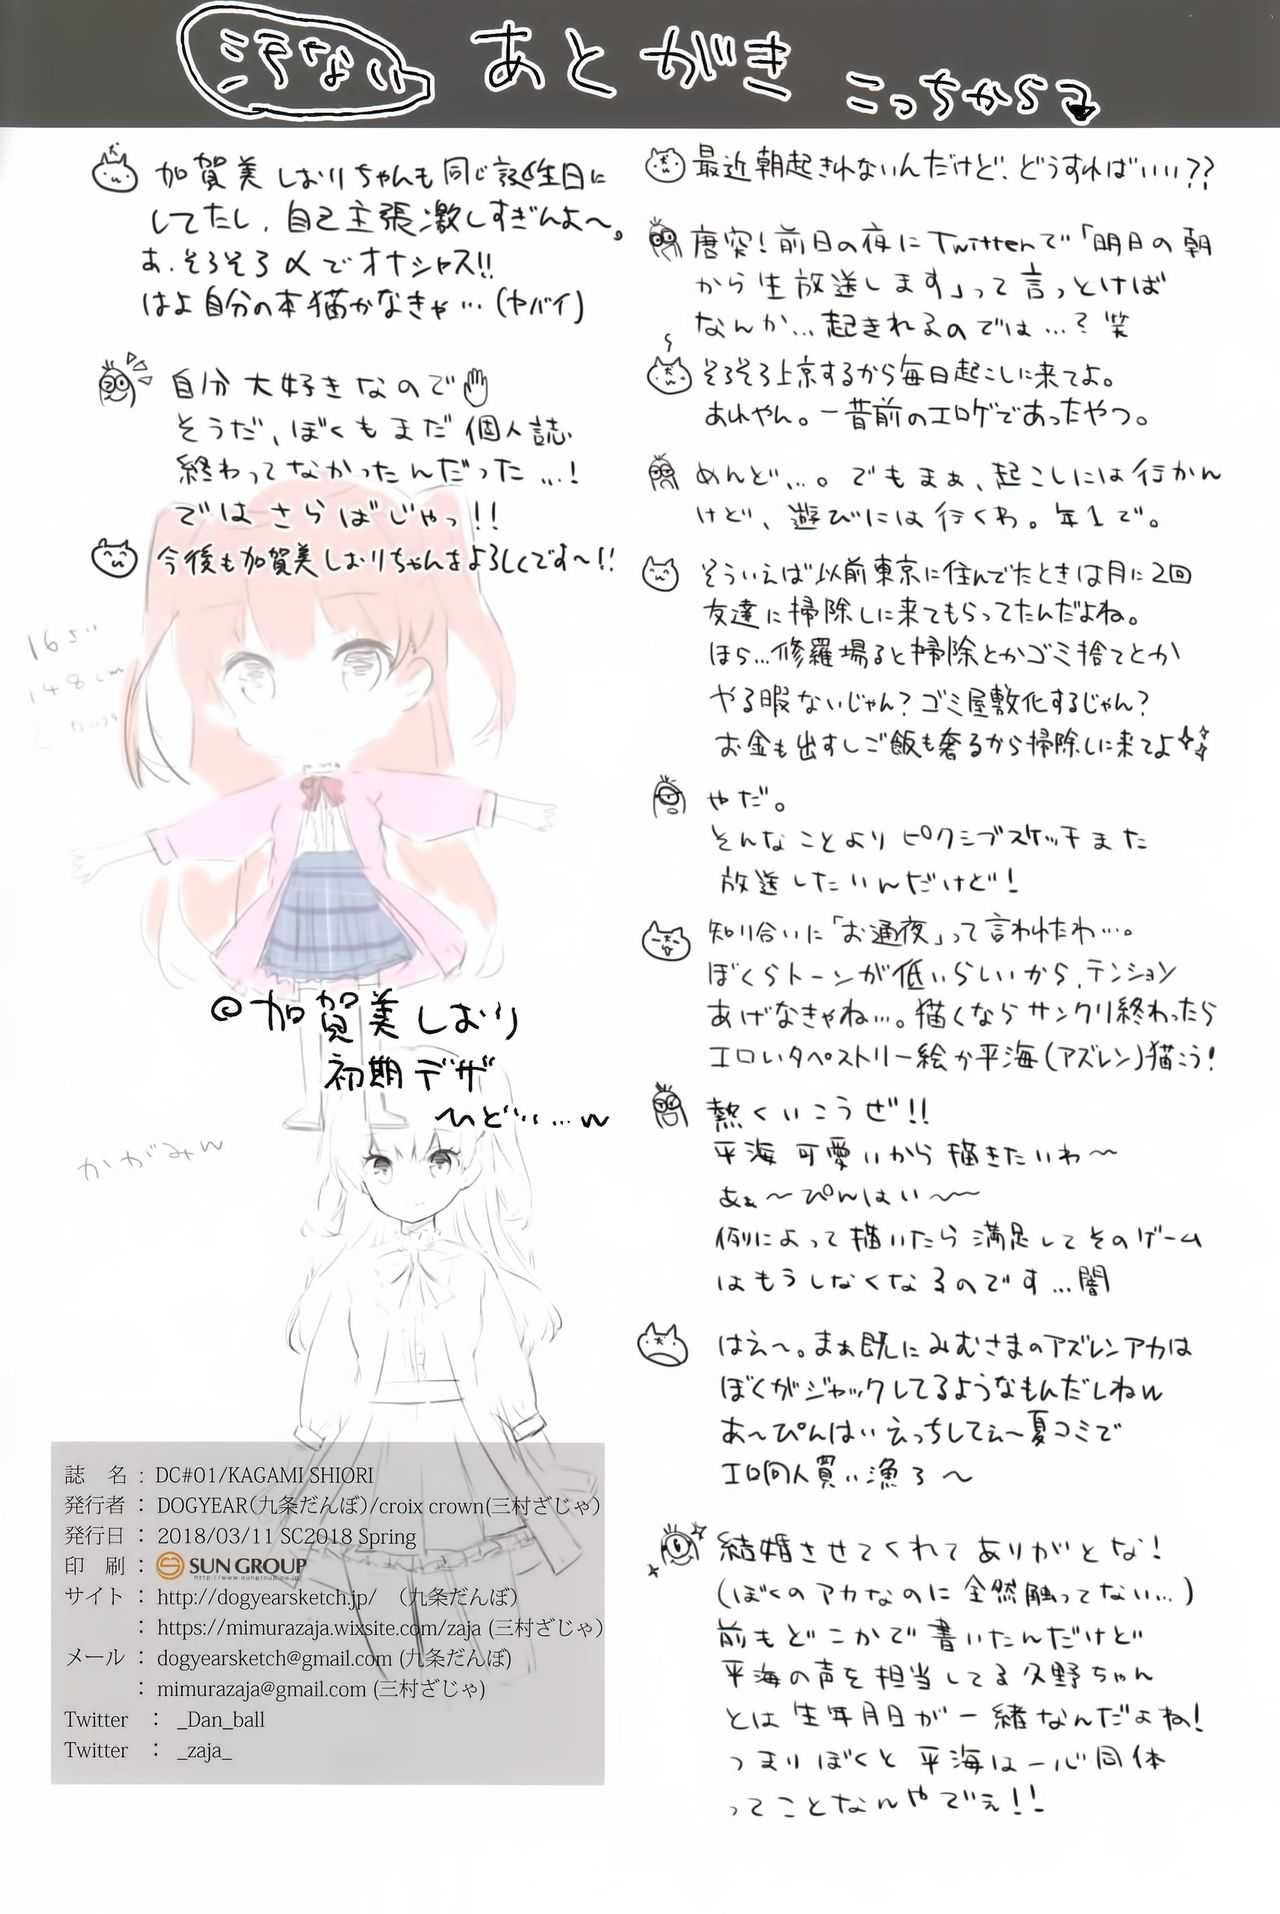 汚ない あとがき こっちから
最近朝起きれないんだけど、どうすればいい??
唐突!前日の夜にTwitterで「明日の朝
から生放送します」って言っとけば
なんか…起きれるのでは…?笑
そろそろ上京するから毎日起こしに来てよ。
あれやん。一昔前のエロゲであったやつ。
めんど…。でもまぁ、起こしには行かん
けど、遊びには行くわ。年1で。
そういえば以前東京に住んでたときは月に2回
友達に掃除しに来てもらってたんだよね。
ほら…修羅場ると掃除とかゴミ捨てとか
やる暇ないじゃん?ゴミ屋敷化するじゃん?
お金も出すしご飯も奢るから掃除しに来てよ
やだ。
そんなことよりピクシブスケッチまた
放送したいんだけど!
知り合いに「お通夜」って言われたわ…。
ぼくらトーンが低いらしいから、テンション
あげなきゃね…。描くならサンクリ終わったら
エロいタペストリー絵か平海(アズレン)描こう!
熱くいこうぜ!!
平海 可愛いから描きたいわ〜
あぁ〜ぴんはい〜〜
例によって描いたら満足してそのゲーム
はもうしなくなるのです…闇
はえ〜。まぁ既にみむさまのアズレンアカは
ぼくがジャックしてるようなもんだしねw
あ〜ぴんはいえっちしてぇ〜夏コミで
エロ同人買い漁ろ〜
結婚させてくれてありがとな!
(ぼくのアカなのに全然触ってない…)
前もどこかで書いたんだけど
平海の声を担当してる久野ちゃん
とは生年月日が一緒なんだよね!
つまりぼくと平海は一心同体
ってことなんやでぇ!!
加賀美しおりちゃんも同じ誕生日に
してたし、自己主張激しすぎんよ〜。
あ、そろそろ〆でオナシャス!!
はよ自分の本描かなきゃ…(ヤバイ)
自分大好きなので
そうだ、ぼくもまだ個人誌
終わってなかったんだった…!
ではさらばじゃっ!!
今後も加賀美しおりちゃんをよろしくです〜!!
16さい
148cm
@加賀美しおり
初期デザ
〜ひど……w
かがみん
誌 名 : DC#01/KAGAMI SHIORI
発行者 : DOGYEAR(九条だんぼ)/croix crown(三村ざじゃ)
発行日 : 2018/03/11 SC2018 Spring
印 刷 : SUN GROUP
サイト : http://dogyearsketch.jp/ (九条だんぼ)
: https://mimurazaja.wixsite.com/zaja (三村ざじゃ)
メール : dogyearsketch@gmail.com (九条だんぼ)
: mimurazaja@gmail.com (三村ざじゃ)
Twitter : _Dan_ball
Twitter : _zaja_